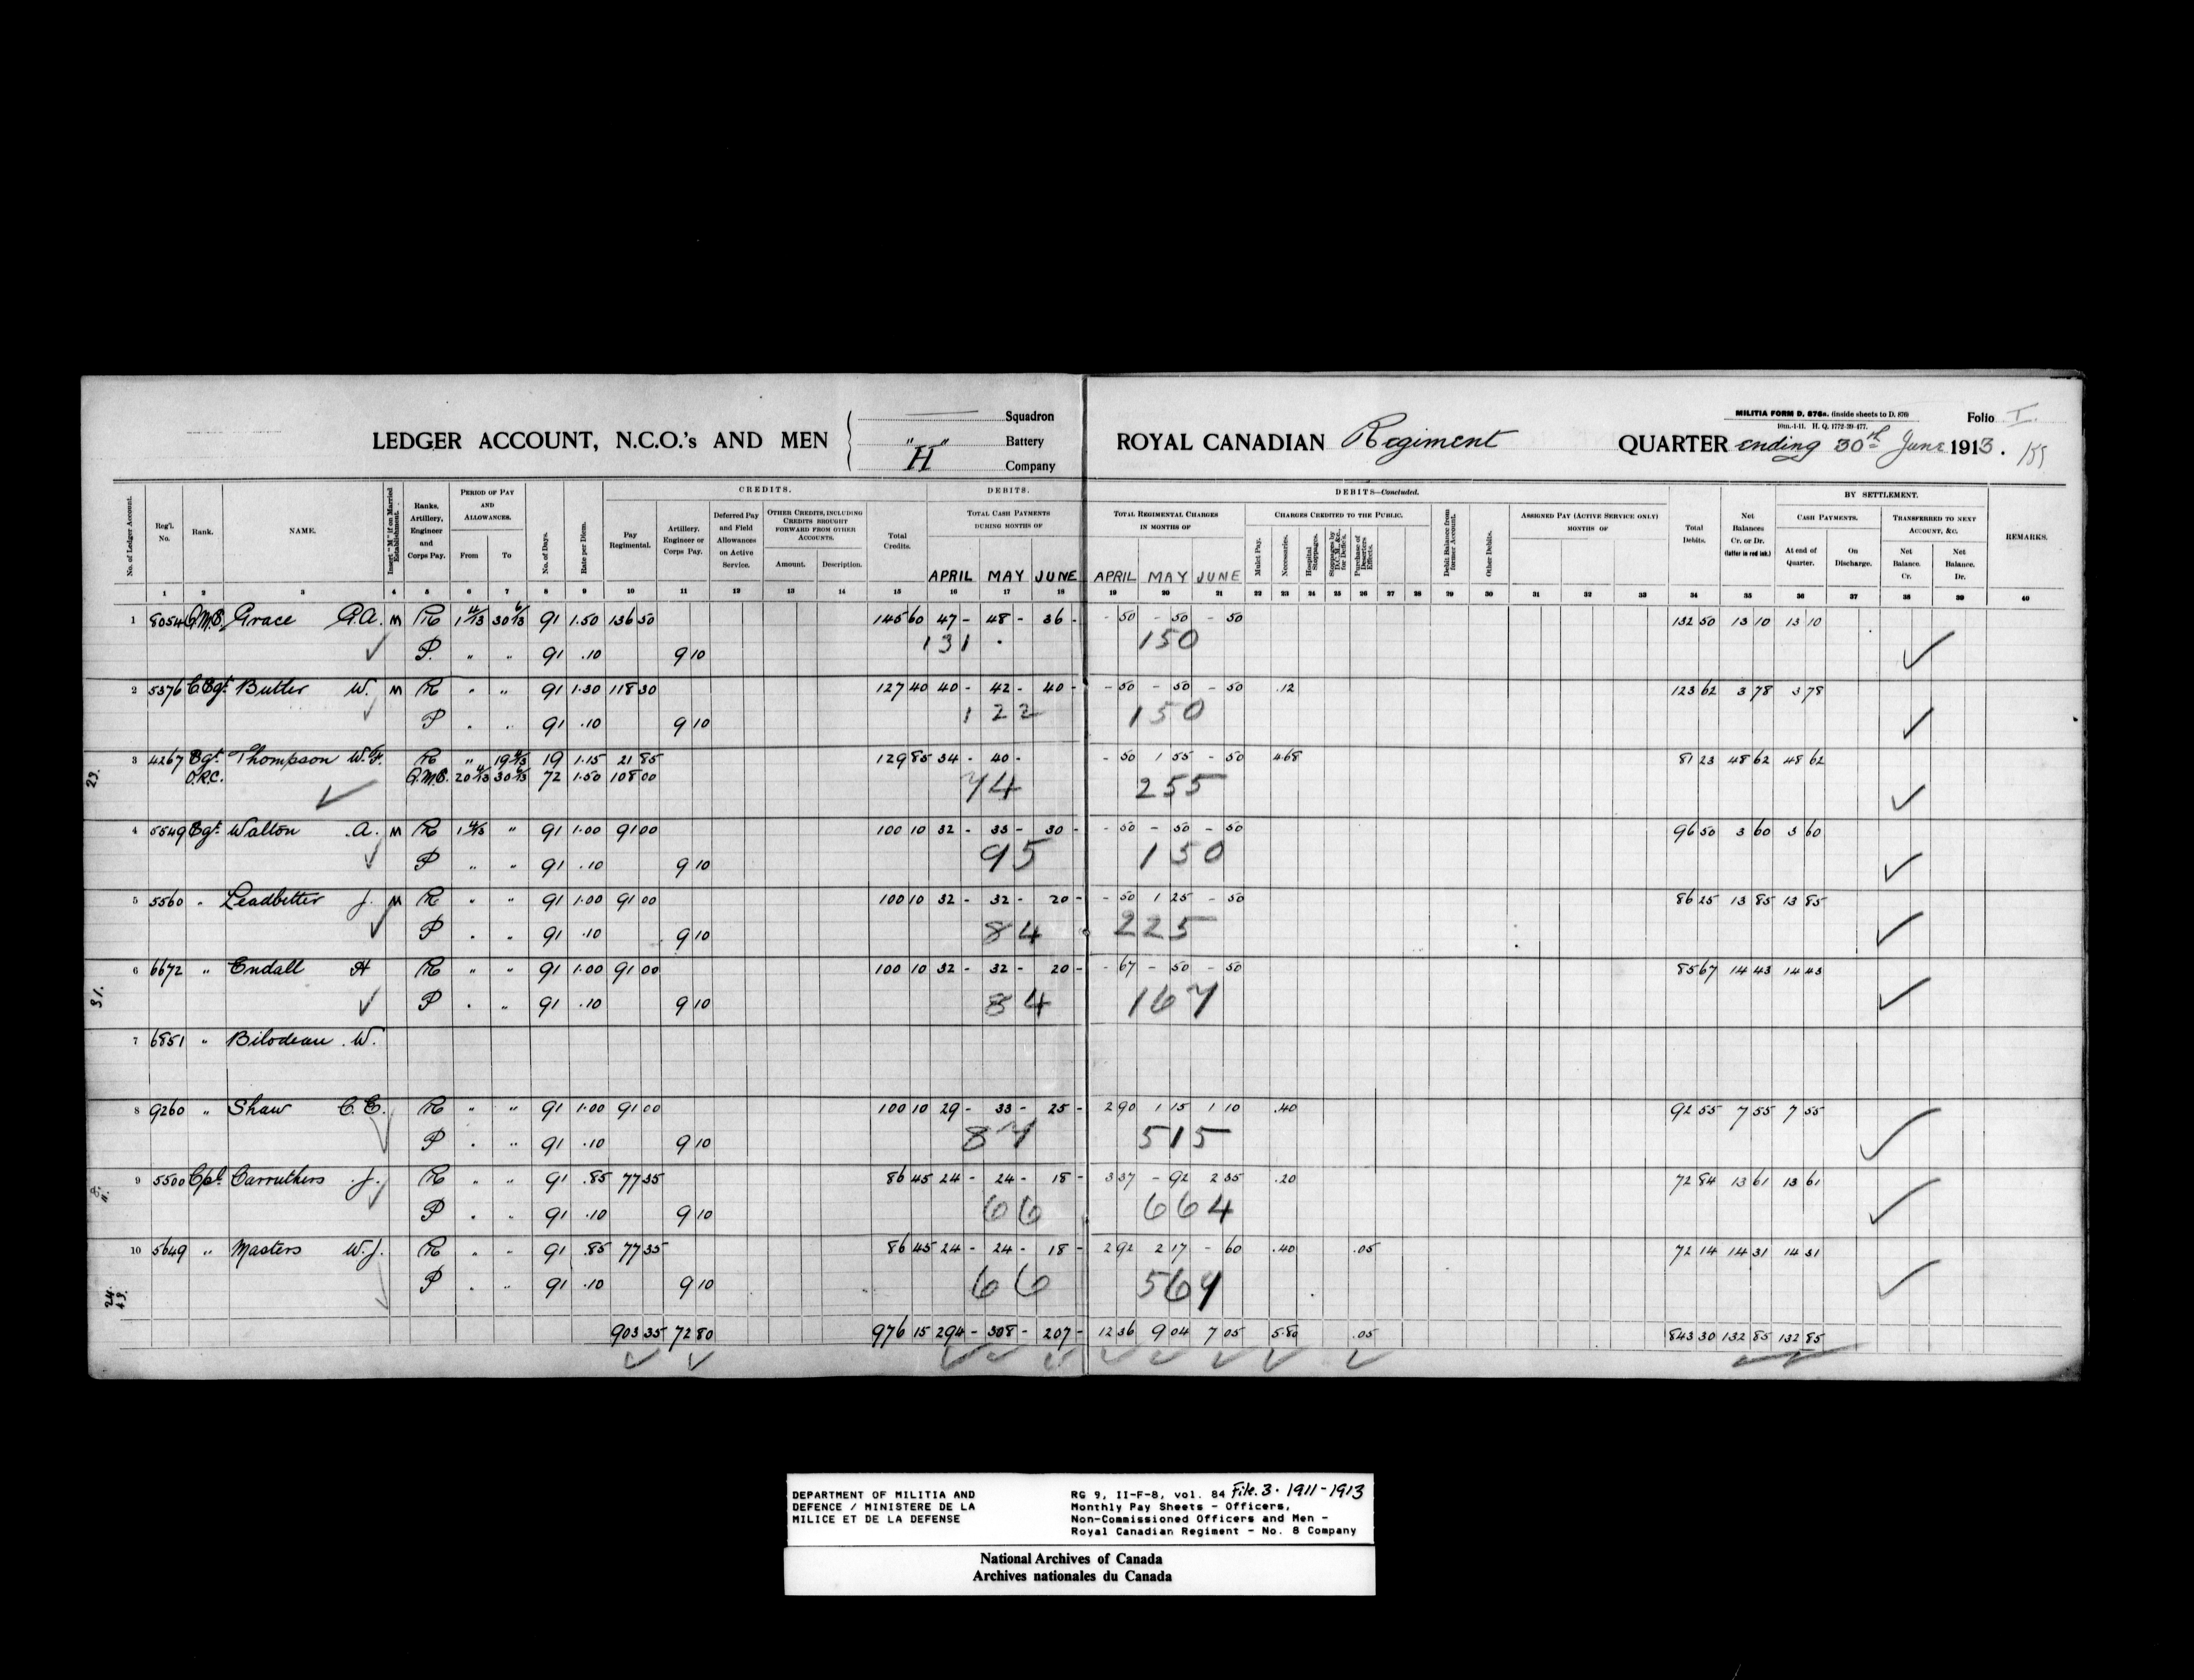 LEDGER ACCOUNT, N.C.O.'s AND MEN
Squadron
" " Battery
H Company
ROYAL CANADIAN Regiment
MILITIA FORM D. 876a. (inside sheets to D. 876)
10m.-1-11. H. Q. 1772-39-477.
Folio I.
QUARTER ending 30th June 1913.
CREDITS. DEBITS. DEBITS—Concluded. BY SETTLEMENT.
No. of Ledger Account.
Reg'l. No.
Rank.
NAME.
Insert "M" if on Married Establishment.
Ranks, Artillery, Engineer and Corps Pay.
PERIOD OF PAY AND ALLOWANCES.
From To
No. of Days.
Rate per Diem.
Pay Regimental.
Artillery, Engineer or Corps Pay.
Deferred Pay and Field Allowances on Active Service.
OTHER CREDITS, INCLUDING CREDITS BROUGHT FORWARD FROM OTHER ACCOUNTS.
Amount. Description.
Total Credits.
TOTAL CASH PAYMENTS DURING MONTHS OF
APRIL MAY JUNE
TOTAL REGIMENTAL CHARGES IN MONTHS OF
APRIL MAY JUNE
CHARGES CREDITED TO THE PUBLIC.
Mulct Pay.
Necessaries.
Hospital Stoppages.
Stoppages by D.C.M., &c. for Deflcs.
Purchase of Deserters Effects.
Debit Balance from former Account.
Other Debits.
ASSIGNED PAY (ACTIVE SERVICE ONLY) MONTHS OF
Total Debits.
Net Balances Cr. or Dr. (latter in red ink.)
CASH PAYMENTS.
At end of Quarter. On Discharge.
TRANSFERRED TO NEXT ACCOUNT, &c.
Net Balance. Cr. Net Balance. Dr.
REMARKS.
1 2 3 4 5 6 7 8 9 10 11 12 13 14 15 16 17 18 19 20 21 22 23 24 25 26 27 28 29 30 31 32 33 34 35 36 37 38 39 40
1 8054 Q.M.S. Grace G.A. M R 1 4/13 30 6/13 91 1.50 136 50 145 60 47 - 48 - 36 - - 50 - 50 - 50 132 50 13 10 13 10
131 . 150
P. " " 91 .10 9 10
2 5376 C Sgt. Butler W. M R " " 91 1.30 118 30 127 40 40 - 42 - 40 - - 50 - 50 - 50 .12 123 62 3 78 3 78
122 150
P " " 91 .10 9 10
3 4267 Sgt. Thompson W.F. R " 19 4/13 19 1.15 21 85 129 85 34 - 40 - - 50 1 55 - 50 4.68 81 23 48 62 48 62
O.R.C. Q.M.S. 20 4/13 30 6/13 72 1.50 108 00
74 255
23.
4 5549 Sgt. Walton A. M R 1 4/13 " 91 1.00 91 00 100 10 32 - 33 - 30 - - 50 - 50 - 50 96 50 3 60 3 60
95 150
P " " 91 .10 9 10
5 5560 " Leadbetter J. M R " " 91 1.00 91 00 100 10 32 - 32 - 20 - - 50 1 25 - 50 86 25 13 85 13 85
84 225
P " " 91 .10 9 10
6 6672 " Endall H R " " 91 1.00 91 00 100 10 32 - 32 - 20 - - 67 - 50 - 50 85 67 14 43 14 43
84 167
31. P " " 91 .10 9 10
7 6851 " Bilodeau W.
8 9260 " Shaw C.E. R " " 91 1.00 91 00 100 10 29 - 33 - 25 - 2 90 1 15 1 10 .40 92 55 7 55 7 55
87 515
P " " 91 .10 9 10
9 5500 Cpl. Carruthers J. R " " 91 .85 77 35 86 45 24 - 24 - 18 - 3 37 - 92 2 35 .20 72 84 13 61 13 61
66 664
P " " 91 .10 9 10
10 5649 " Masters W.J. R " " 91 .85 77 35 86 45 24 - 24 - 18 - 2 92 2 17 - 60 .40 .05 72 14 14 31 14 31
66 569
P " " 91 .10 9 10
903 35 72 80 976 15 294 - 308 - 207 - 12 36 9 04 7 05 5.80 .05 843 30 132 85 132 85
DEPARTMENT OF MILITIA AND
DEFENCE / MINISTERE DE LA
MILICE ET DE LA DEFENSE
RG 9, II-F-8, vol. 84 File. 3. 1911-1913
Monthly Pay Sheets - Officers,
Non-Commissioned Officers and Men -
Royal Canadian Regiment - No. 8 Company
National Archives of Canada
Archives nationales du Canada